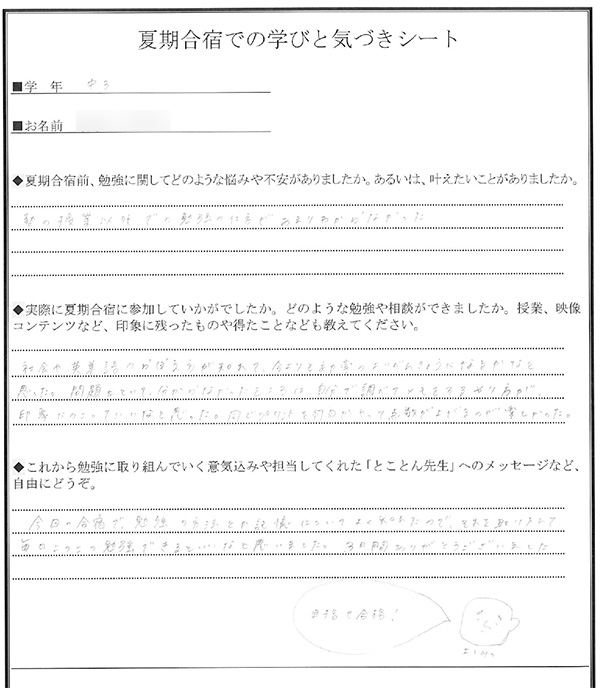 夏期合宿での学びと気づきシート
■学　年　中3
■お名前
◆夏期合宿前、勉強に関してどのような悩みや不安がありましたか。あるいは、叶えたいことがありましたか。
塾の授業以外での勉強の仕方があまりわからなかった
◆実際に夏期合宿に参加していかがでしたか。どのような勉強や相談ができましたか。授業、映像
コンテンツなど、印象に残ったものや得たことなども教えてください。
社会や英単語の
思った。問題をといて、分からなかったところは、自分で調べてメモをする
印象にのこっていいなと思った。同じプリントを何回かやって点数が上がるのが楽しかった。
◆これから勉強に取り組んでいく意気込みや担当してくれた「とことん先生」へのメッセージなど、
自由にどうぞ。
今回の合宿で、勉強の方法とか記憶についてよく知れたので、それを取り入れて
毎日こつこつ勉強できるといいなと思いました。3日間ありがとうございました
合格！